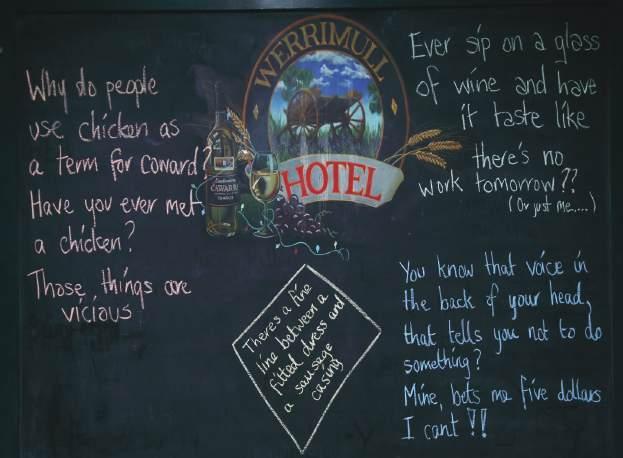 Why do people
use chicken as
a term for coward?
Have you ever met
a chicken?
Those things are
vicious
WERRIMULL
HOTEL
CAWARRA
There's a fine
line between a
fitted dress and
a sausage
casing
Ever sip on a glass
of wine and have
it taste like
there's no
work tomorrow??
(Or just me....)
You know that voice in
the back of your head,
that tells you not to do
something?
Mine, bets me five dollars
I cant !!